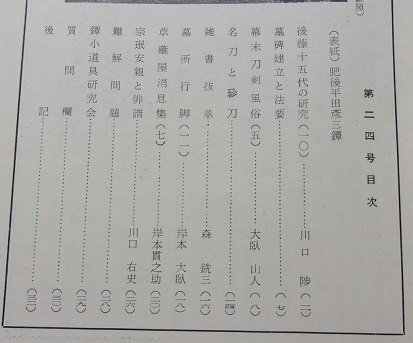 照）
第二四号目次
（表紙）肥後平田彦三鐔
後藤十五代の研究（一〇）…………川口陟…（二）
墓碑建立と法要…………（七）
幕末刀剣風俗（五）…………大臥山人…（八）
名刀と珍刀…………（一四）
雑書抜萃…………森銑三…（一六）
墓所行脚（一一）…………岸本大臥…（一八）
草薙屋消息集（七）…………岸本貫之助…（二〇）
宗珉安親と俳諧…………川口右史…（二六）
難解問題…………（二八）
鐔小道具研究会…………（二九）
質問欄…………（三〇）
後記…………（三二）